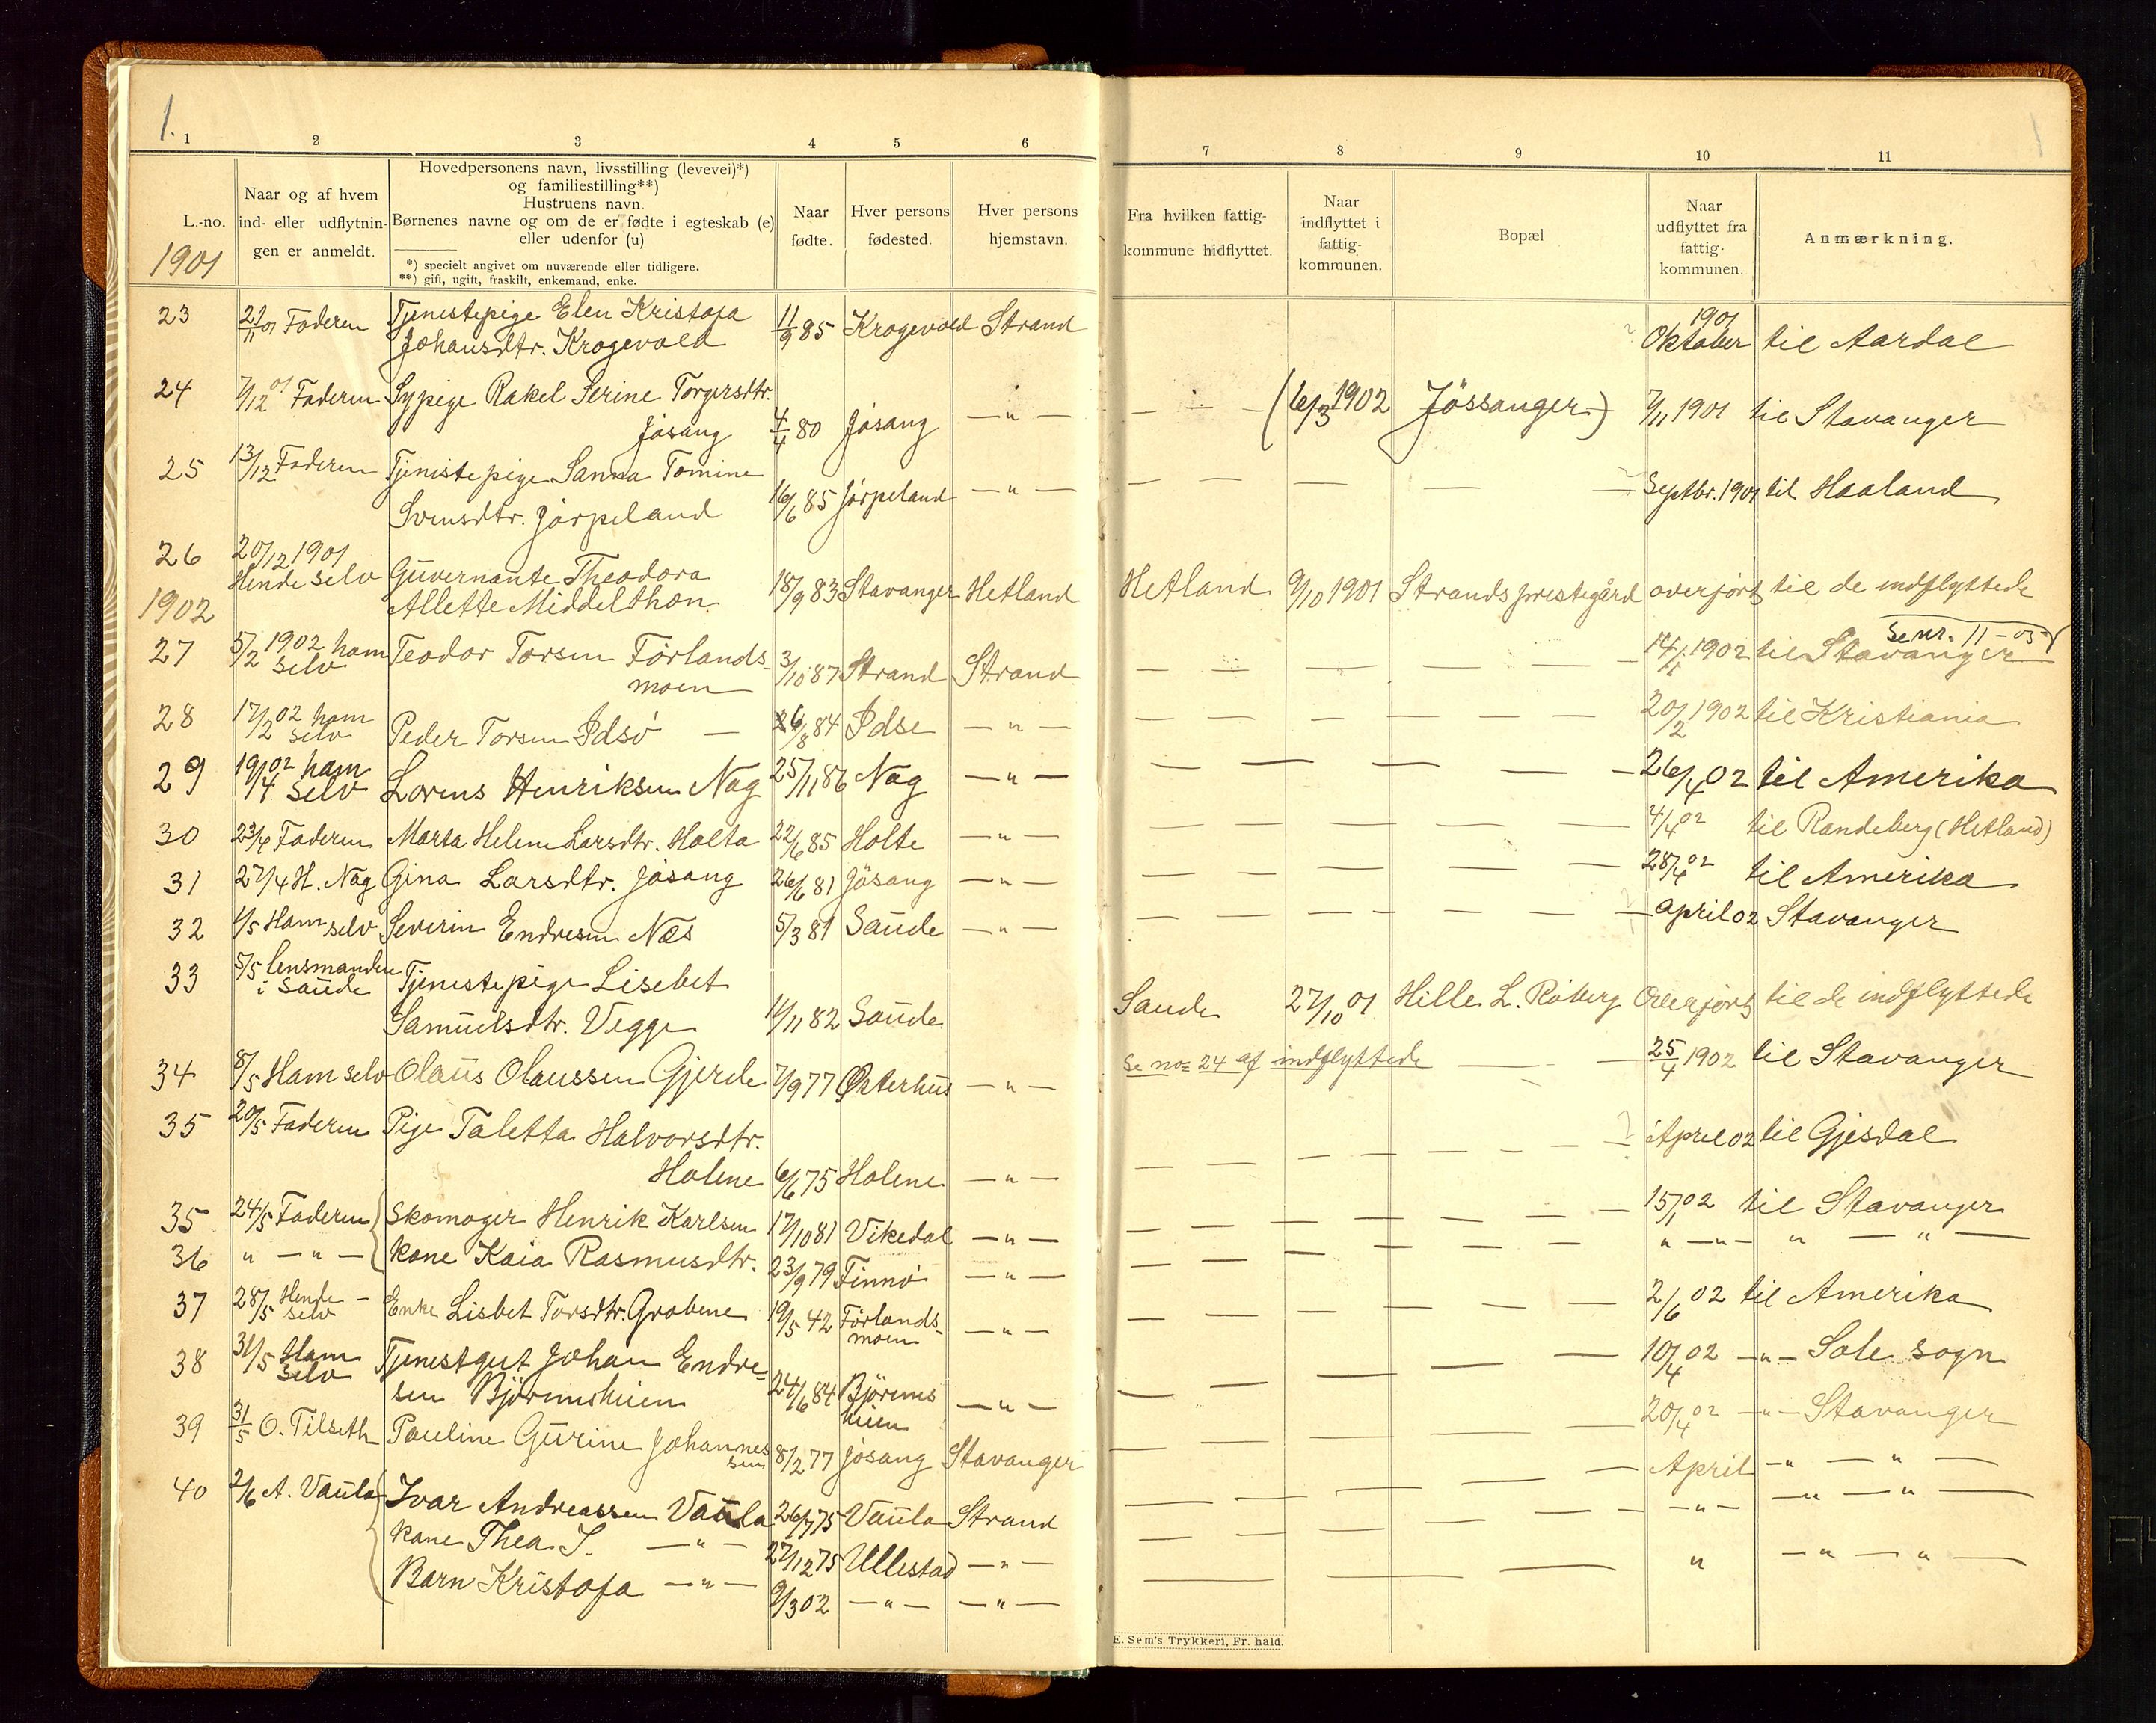 1.
1 2 3 4 5 6 7 8 9 10 11
L.-no.
1901
Naar og af hvem
ind- eller udflytnin-
gen er anmeldt.
Hovedpersonens navn, livsstilling (levevei)*)
og familiestilling**)
Hustruens navn.
Børnenes navne og om de er fødte i egteskab (e)
eller udenfor (u)
*) specielt angivet om nuværende eller tidligere.
**) gift, ugift, fraskilt, enkemand, enke.
Naar
fødte.
Hver persons
fødested.
Hver persons
hjemstavn.
Fra hvilken fattig-
kommune hidflyttet.
Naar
indflyttet i
fattig-
kommunen.
Bopæl
Naar
udflyttet fra
fattig-
kommunen.
Anmærkning.
23 22/11 01 Faderen Tjenestepige Elen Kristofa
Johansdtr. Krogevold 11/9 85 Krogevold Strand ? 1901 Oktober til Aardal
24 7/12 01 Faderen Sypige Rakel Serine Torgersdtr.
Jøsang 4/4 80 Jøsang — " — — — — (6/3 1902 Jössanger.) 7/11 1901 til Stavanger
25 13/12 Faderen Tjenistepige Sanna Tomine
Svensdtr. Jørpeland 16/6 85 Jørpeland — " — — — — — — ? Septbr. 1901 til Haaland
26 20/12 1901
Hende selv Guvernante Theodora
Allette Middelthon. 18/9 83 Stavanger Hetland Hetland 9/10 1901 Strands prestegård overført til de indflyttede
1902
27 5/2 1902 ham
selv Teodor Torsen Förlands-
moen 3/10 87 Strand Strand — — — — — — — 14/1 1902 til Stavanger Se nr. 11 - 03
28 17/2 02 ham
selv Peder Torsen Idsö — 26/8 84 Idse — " — — — — — — — — 20/2 1902 til Kristiania
29 19/4 02 ham
selv Lorens Henriksen Nag 25/11 86 Nag — " — — — — — — 26/4 02 til Amerika
30 23/4 Faderen Marta Helene Larsdtr. Holta 22/6 85 Holte — " — — — — — — — 4/4 02 til Randeberg (Hetland)
31 27/4 H. Nag Gina Larsdtr. Jøsang 26/6 81 Jösang — " — — — — — — — 28/4 02 til Amerika
32 1/5 Ham selv Severin Endresen Næs 5/3 81 Saude — " — — — — — — — ? april 02 Stavanger
33 5/5 lensmanden
i Saude Tjenestepige Lisebet
Samuelsdtr. Vegge 11/11 82 Saude Saude 27/10 01 Hille L. Röberg Overført til de indflyttede
34 8/5 Ham selv Olaus Olaussen Gjerde 7/9 77 Østerhus — " — Se no= 24 af indflyttede — — — 25/4 1902 til Stavanger
35 20/5 Faderen Pige Taletta Halvorsdtr.
Holene 6/6 75 Holene — " — — — — — — — — ? April 02 til Gjesdal
35 24/5 Faderen Skomager Henrik Karlsen 17/10 81 Vikedal — " — — — — — — — — 15/1 02 til Stavanger
36 " — " — kone Kaia Rasmusdtr. 23/9 79 Finnö — " — — — — — — — " — " — " — " —
37 28/5 Hende
selv — Enke Lisbet Torsdtr. Grobene 19/5 42 Förlands-
moen — " — — — — — — — 2/6 02 til Amerika
38 31/5 Ham
selv Tjenestgut Johan Endre-
sen Björnnshuien 24/6 84 Björnns
huien — " — — — — — — 10/4 02 — " — Sole sogn
39 31/5 O. Tilseth Pauline Gurine Johannes
sen 8/2 77 Jøsang Stavanger — — — — — 20/4 02 — " — Stavanger
40 2/6 A. Vaula Ivar Andreassen Vaula 26/7 75 Vaula Strand — — — — — April — " — " —
kone Thea I. — " — 27/12 75 Ullestad — " — — — — — — — " — — " — " —
Barn Kristofa — " — 9/3 02 — " — — " — — — — — " — " — " —
E. Sem's Trykkeri, Fr. hald.